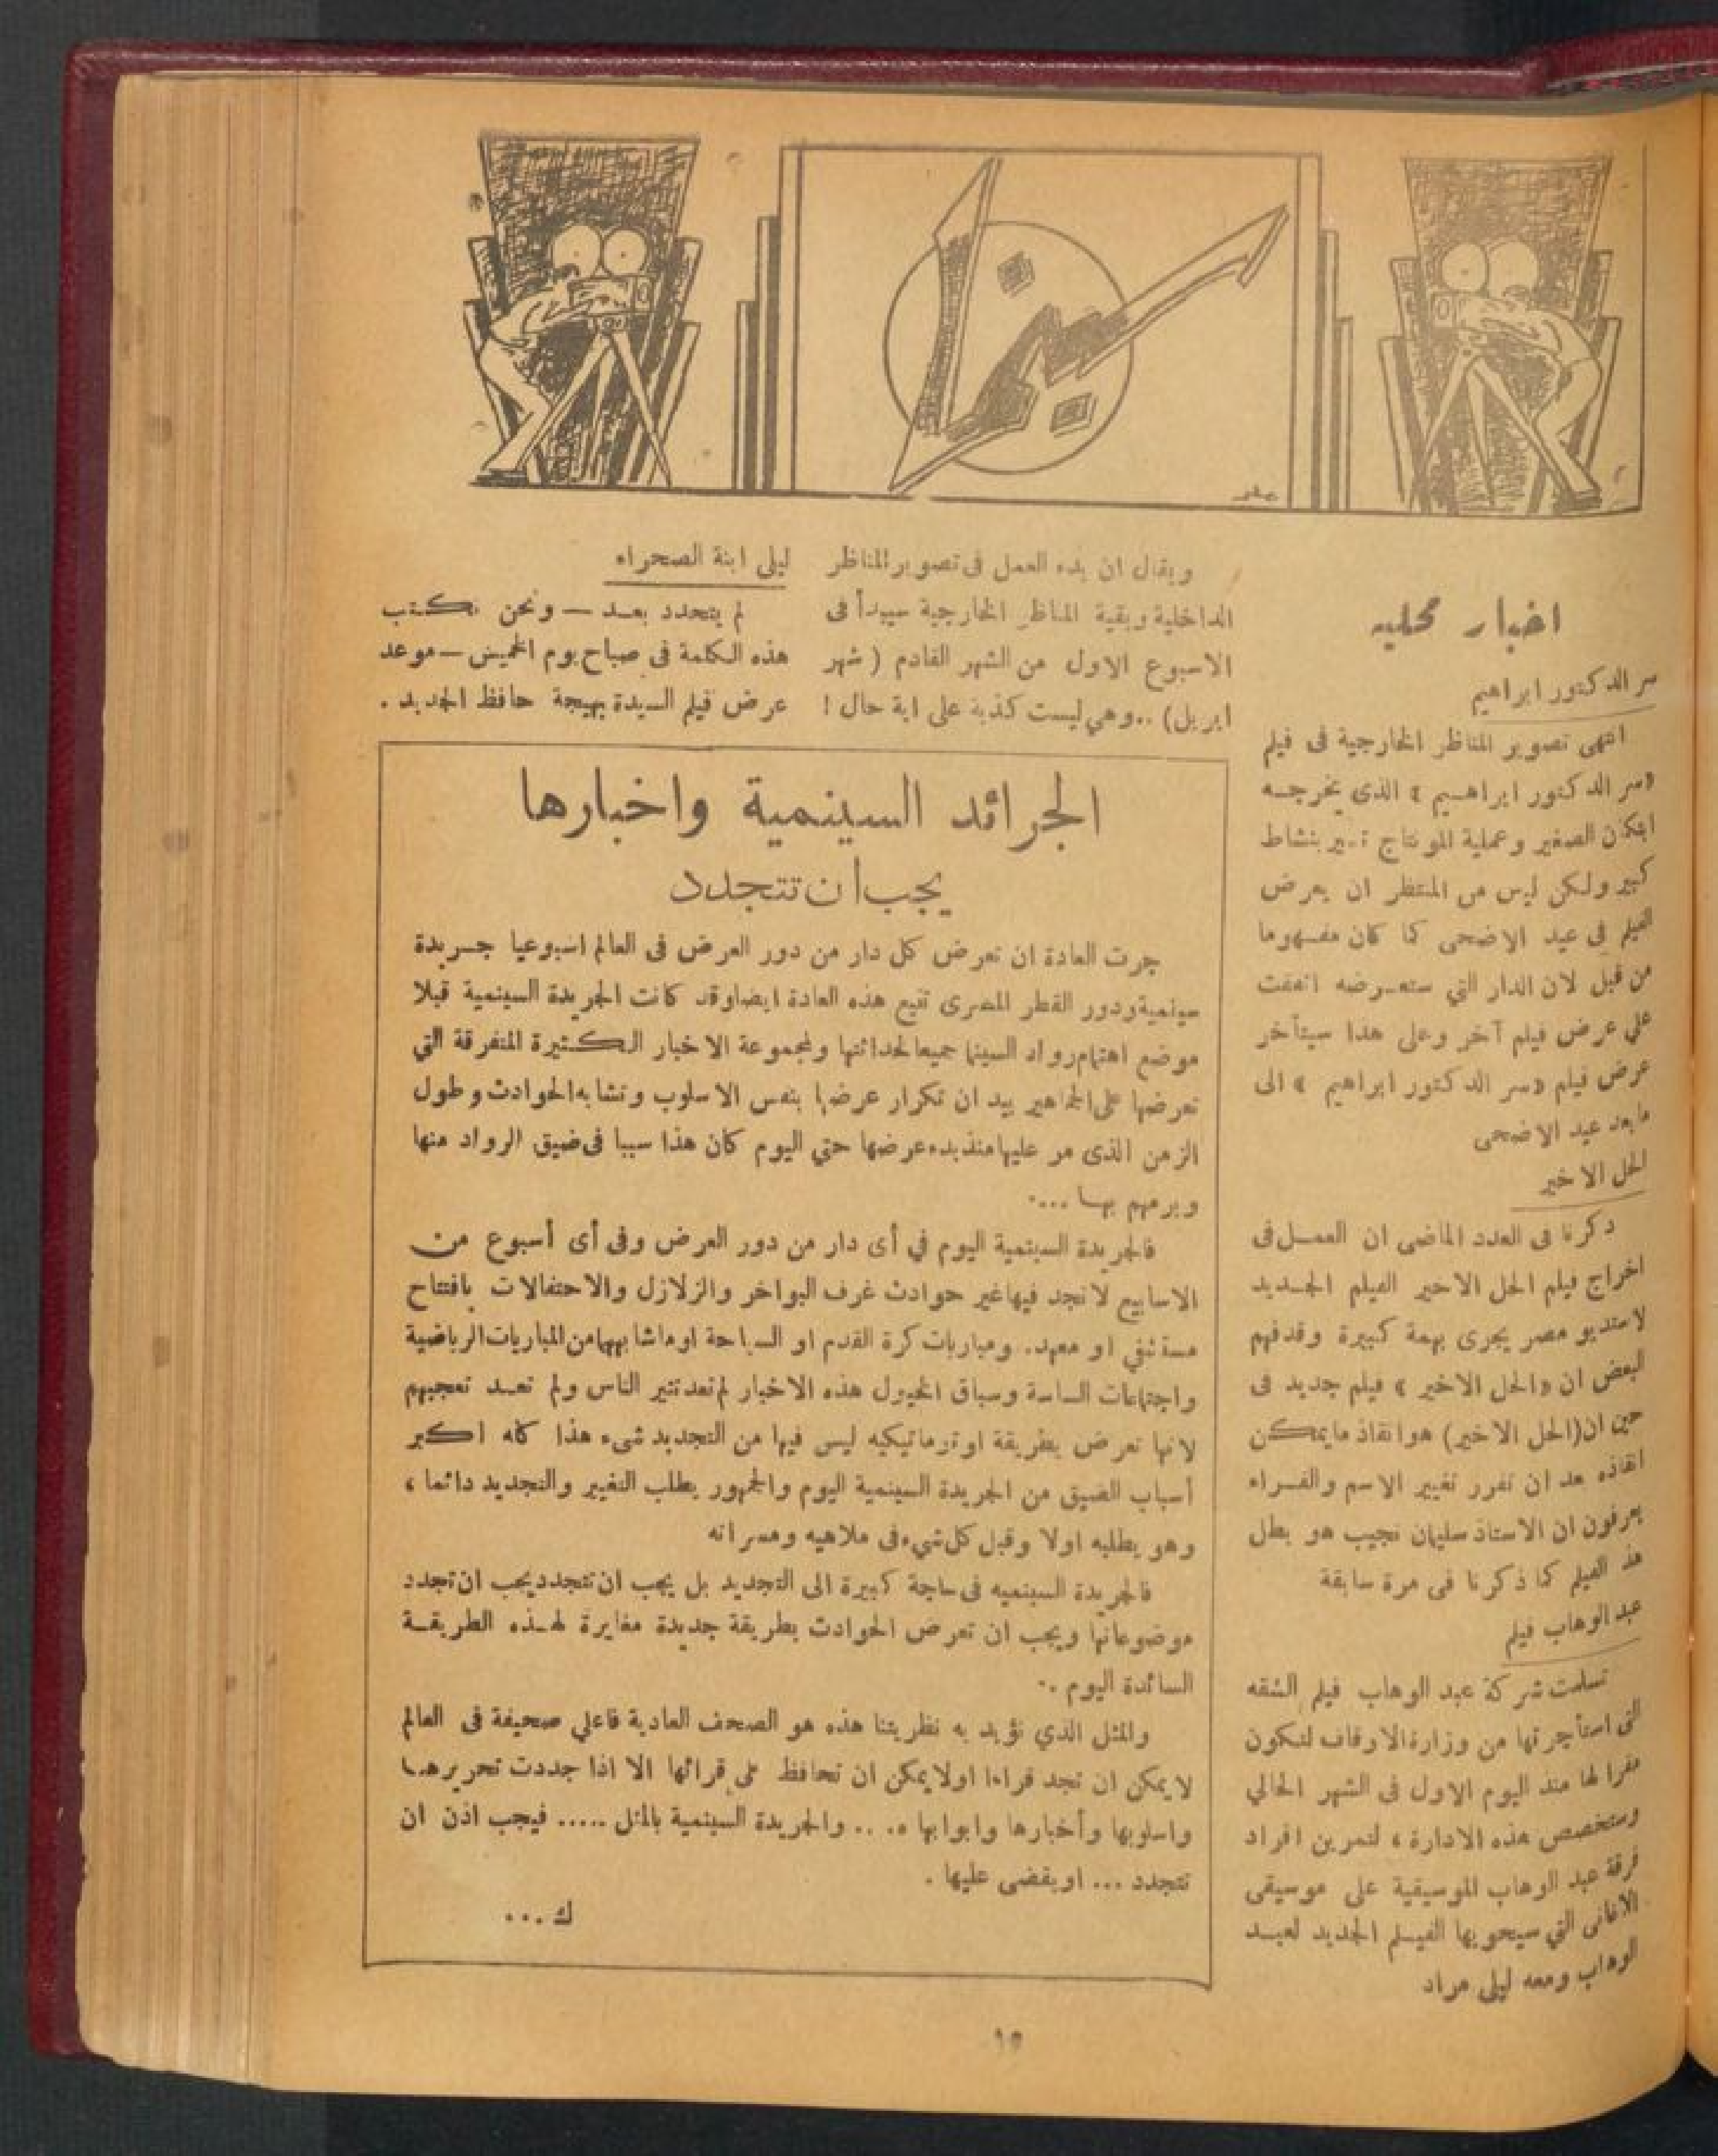 سينما
اخبار محليه
سر الدكتور ابراهيم
انتهى تصوير المناظر الخارجية فى فيلم
«سر الدكتور ابراهيم » الذى يخرجه
الصغير وعملية المونتاج تسير بنشاط
كبير ولكن ليس من المنتظر ان يعرض
الفيلم في عيد الاضحى كما كان مفهوما
من قبل لان الدار التي ستعرضه اتفقت
على عرض فيلم آخر وعلى هذا سيتأخر
عرض فيلم «سر الدكتور ابراهيم » الى
مابعد عيد الاضحى
الحل الاخير
ذكرنا فى العدد الماضى ان العمل فى
اخراج فيلم الحل الاخير الفيلم الجديد
لاستديو مصر يجرى بهمة كبيرة وقد فهم
البعض ان «الحل الاخير » فيلم جديد فى
حين ان (الحل الاخير) هو انقاذ مايمكن
انقاذه بعد ان تقرر تغيير الاسم والقراء
يعرفون ان الاستاذ سليمان نجيب هو بطل
هذ الفيلم كما ذكرنا فى مرة سابقة
عبد الوهاب فيلم
تسلمت شركة عبد الوهاب فيلم الشقه
التى استأجرتها من وزارة الاوقاف لتكون
مقرا لها منذ اليوم الاول فى الشهر الحالي
وستخصص هذه الادارة ، لتمرين افراد
فرقة عبد الوهاب الموسيقية على موسيقى
الاغانى التي سيحويها الفيلم الجديد لعبد
الوهاب ومعه ليلى مراد
ويقال ان بدء العمل فى تصوير المناظر
الداخلية وبقية المناظر الخارجية سيبدأ فى
الاسبوع الاول من الشهر القادم ( شهر
ابريل) ..وهي ليست كذبة على اية حال !
ليلى ابنة الصحراء
لم يتحدد بعد — ونحن نكتب
هذه الكلمة فى صباح يوم الخميس — موعد
عرض فيلم السيدة بهيجة حافظ الجديد .
الجرائد السينمية واخبارها
يجب ان تتجدد
جرت العادة ان تعرض كل دار من دور العرض فى العالم اسبوعيا جريدة
سينمية ودور القطر المصرى تتبع هذه العادة ايضا وقد كانت الجريدة السينمية قبلا
موضع اهتمام رواد السينما جميعا لحداثتها ولمجموعة الاخبار الكثيرة المتفرقة التي
تعرضها على الجماهير بيد ان تكرار عرضها بنفس الاسلوب وتشابه الحوادث وطول
الزمن الذى مر عليها منذ بدء عرضها حتي اليوم كان هذا سببا فى ضيق الرواد منها
وبرمهم بها ....
فالجريدة السينمية اليوم في أى دار من دور العرض وفى أى أسبوع من
الاسابيع لا نجد فيها غير حوادث غرف البواخر والزلازل والاحتفالات بافتتاح
مستشفي او معهد. ومباريات كرة القدم او السباحة او ماشابهها من المباريات الرياضية
واجتماعات الساسة وسباق الخيول هذه الاخبار لم تعد تثير الناس ولم تعد تعجبهم
لانها تعرض بطريقة اوتوماتيكيه ليس فيها من التجديد شىء هذا كله اكبر
أسباب الضيق من الجريدة السينمية اليوم والجمهور يطلب التغيير والتجديد دائما ،
وهو يطلبه اولا وقبل كل شيء فى ملاهيه ومسراته
فالجريدة السينميه فى حاجة كبيرة الى التجديد بل يجب ان تتجدد يجب ان تجدد
موضوعاتها ويجب ان تعرض الحوادث بطريقة جديدة مغايرة لهذه الطريقة
السائدة اليوم ..
والمثل الذي نؤيد به نظريتنا هذه هو الصحف العادية فاعلي صحيفة فى العالم
لا يمكن ان تجد قراءا اولا يمكن ان تحافظ على قرائها الا اذا جددت تحريرها
واسلوبها وأخبارها وابوابها .. .. والجريدة السينمية بالمثل ..... فيجب اذن ان
تتجدد ... او يقضى عليها .
ك ...
١٥